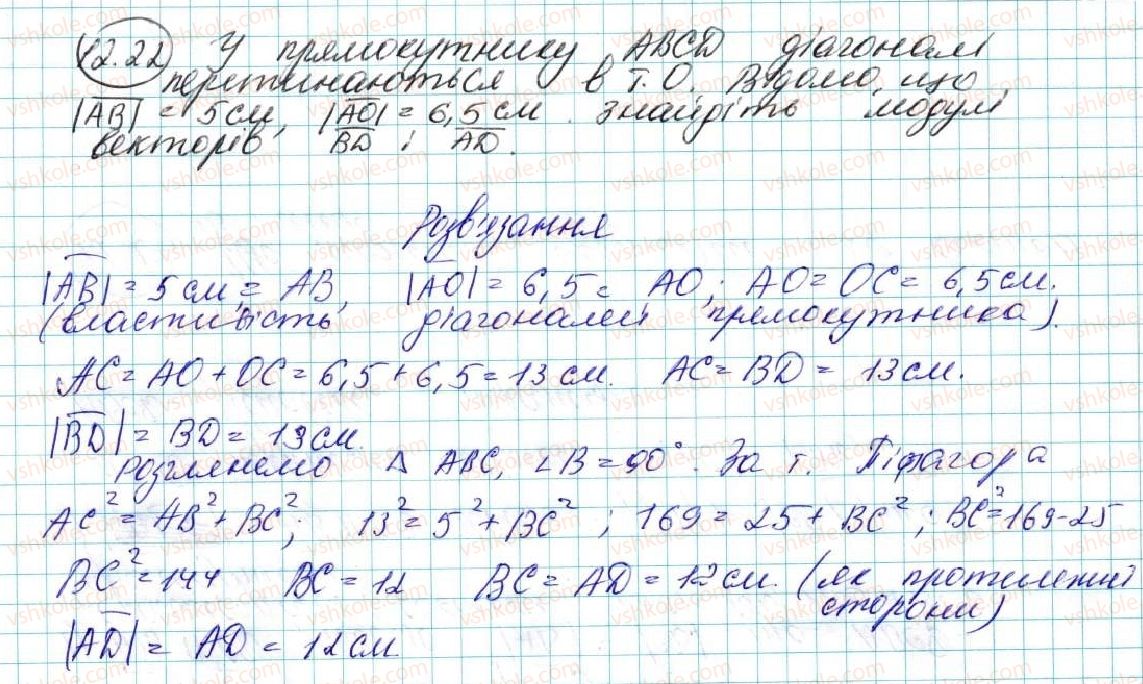 12.22 У прямокутнику ABCD діагоналі
перетинаються в т. О. Відомо, що
|AB| = 5 см, |AO| = 6,5 см. знайдіть модулі
векторів BD і AD.
Розв'язання
|AB| = 5 см = AB, |AO| = 6,5 = AO; AO = OC = 6,5 см.
(властивість діагоналей прямокутника).
AC = AO + OC = 6,5 + 6,5 = 13 см. AC = BD = 13 см.
|BD| = BD = 13 см.
Розглянемо Δ ABC, ∠B = 90°. За т. Піфагора
AC² = AB² + BC²; 13² = 5² + BC²; 169 = 25 + BC²; BC² = 169 - 25
BC² = 144 BC = 12 BC = AD = 12 см. (як протилежні
сторони)
|AD| = AD = 12 см